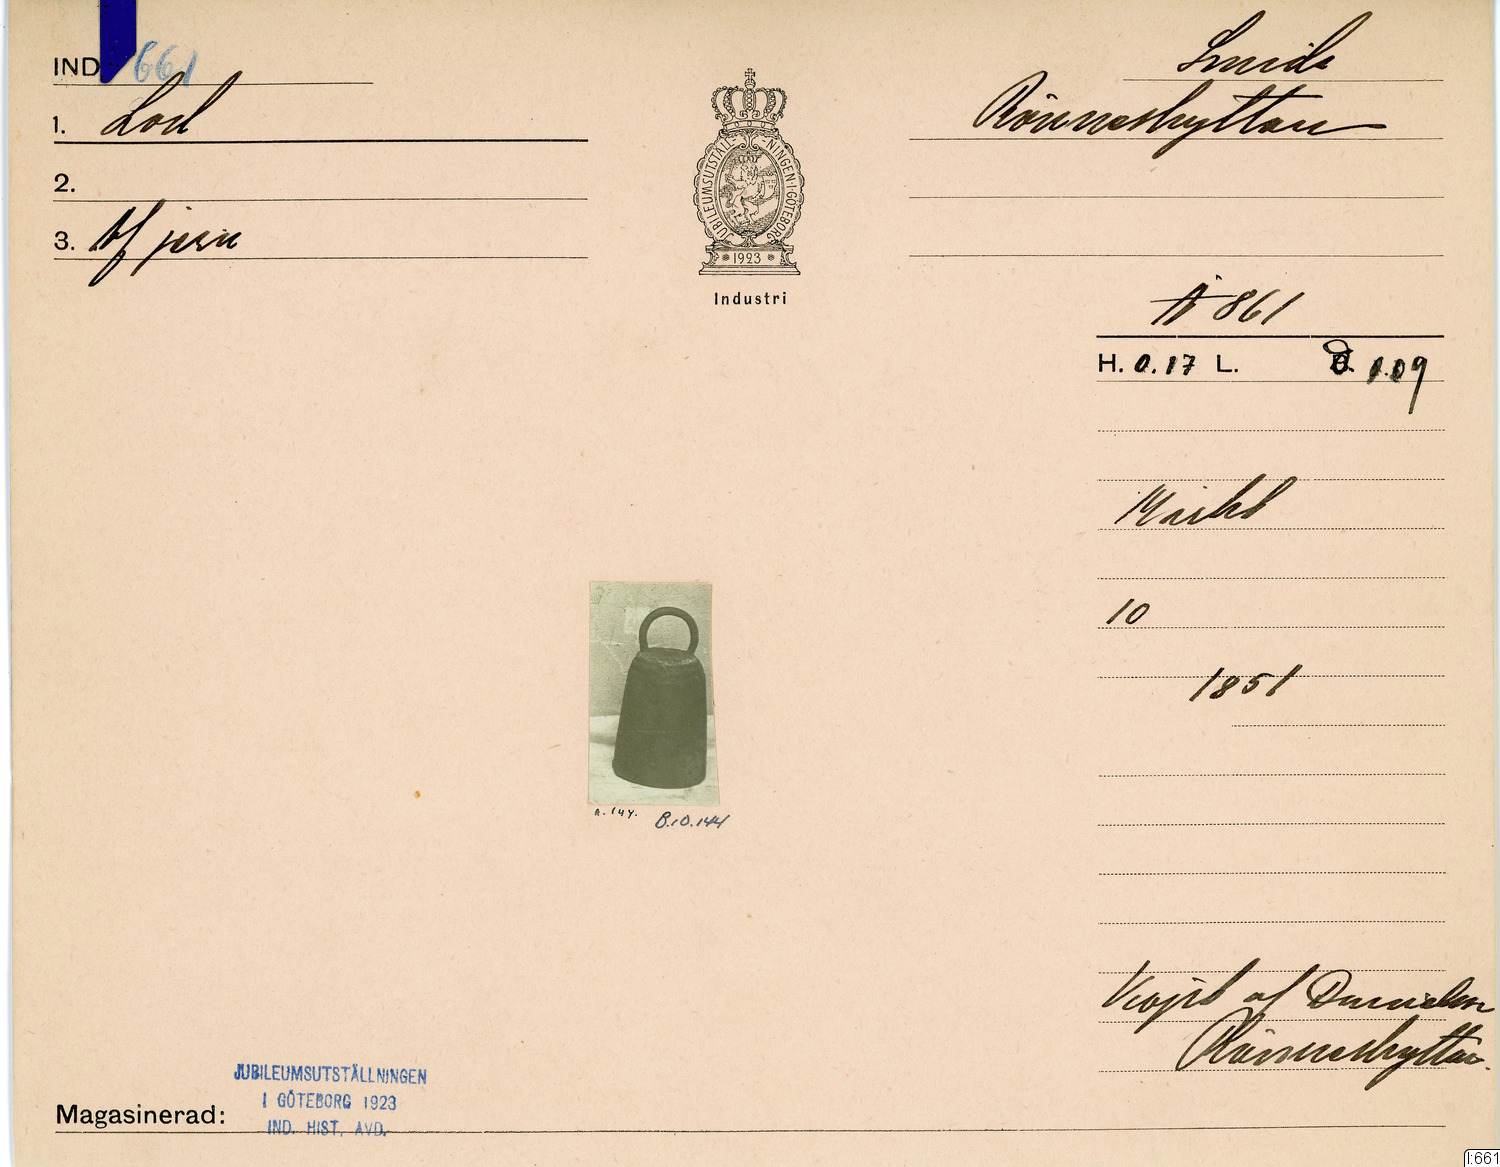 IND 661
1. Lod
2.
3. Af jern
JUBILEUMSUTSTÄLLNINGEN·I·GÖTEBORG
* 1923 *
Industri
Smide
Rönneshyttan
A 861
H. 0.17 L. D. 0.09
Märkt
10
1851
Köpt af Danielson
Rönneshyttan.
a. 144.
B.10.144
JUBILEUMSUTSTÄLLNINGEN
I GÖTEBORG 1923
IND. HIST. AVD.
Magasinerad:
I:661